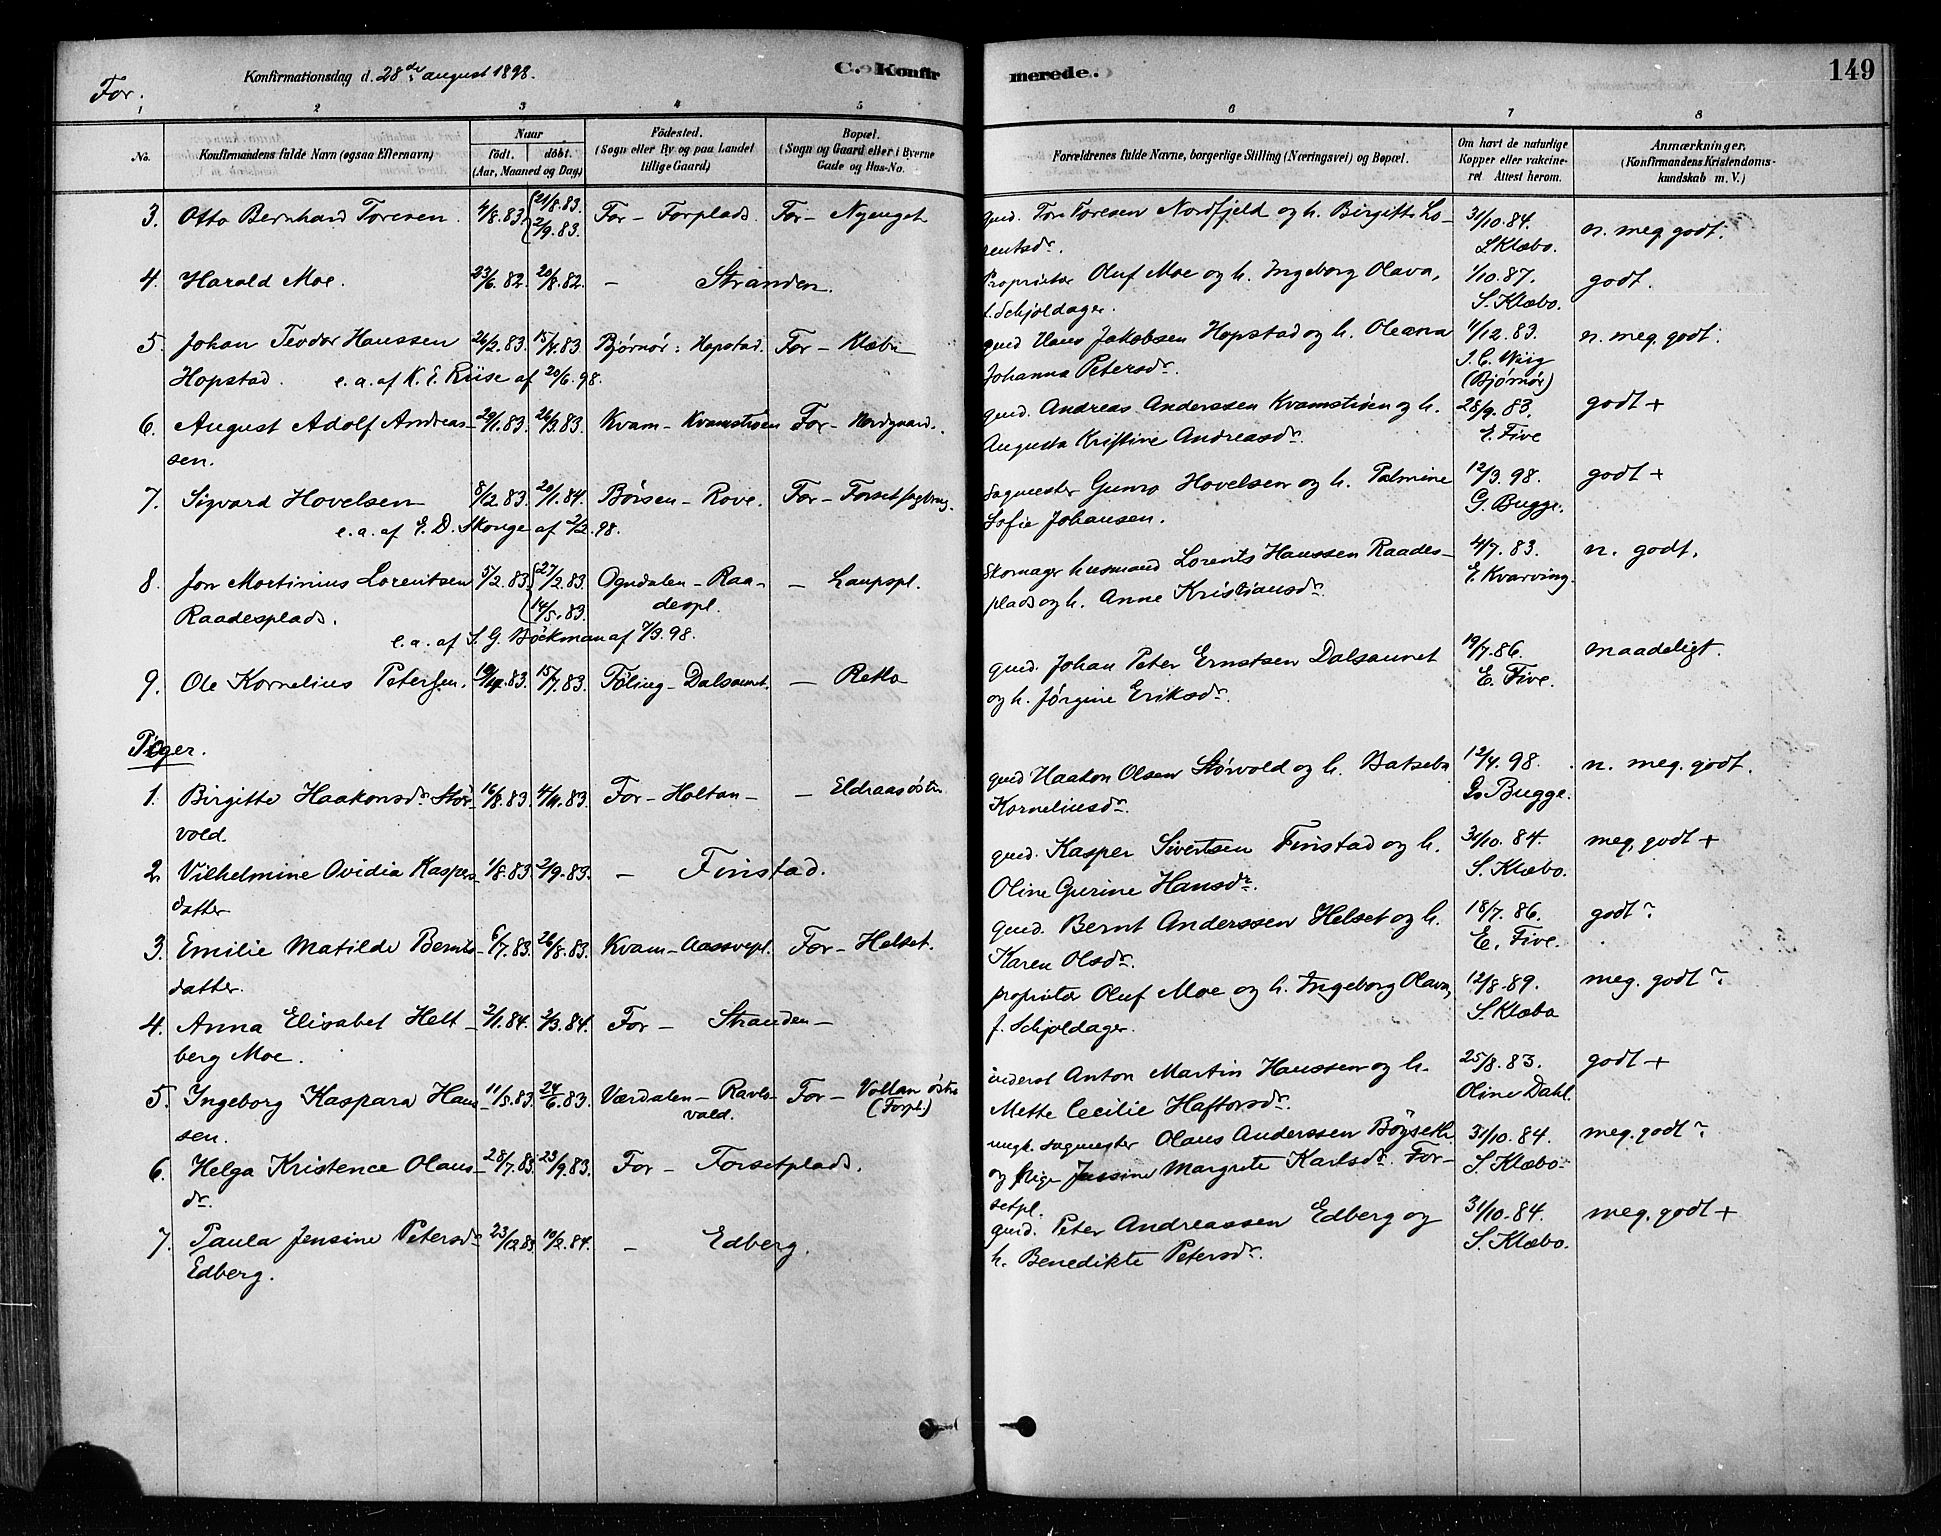 Konfirmationsdag d. 28de august 1898.
C. Konfirmerede.
149
For.
1 2 3 4 5 6 7 8
No.
Konfirmandens fulde Navn (ogsaa Efternavn)
Naar
födt. döbt.
(Aar, Maaned og Dag)
Födested.
(Sogn eller By og paa Landet
tillige Gaard)
Bopæl.
(Sogn og Gaard eller i Byerne
Gade og Hus-No.
Forældrenes fulde Navne, borgerlige Stilling (Næringsvei) og Bopæl.
Om havt de naturlige
Kopper eller vakcine-
ret Attest herom.
Anmærkninger.
(Konfirmandens Kristendoms-
kundskab m. V.)
3. Otto Bernhard Toresen. 4/8.83. 21/8.83. For - Forplads. For - Nyenget gmd. Tore Toresen Nordfjeld og h. Birgitte Lo- 31/10.84. n. meg. godt.
2/9.83. rentsdr. S. Klæbo.
4. Harald Moe. 23/6.82. 20/8.82. - Stranden. Proprietær Oluf Moe og h. Ingeborg Olava, 1/10.87. godt.
f. Schjoldager. S. Klæbo.
5. Johan Teodor Hanssen 26/2.83. 15/4.83. Bjørnør: Hopstad. For - Klæbu gmd Hans Jakobsen Hopstad og h. Oleana 11/12.83. n. meg. godt.
Hopstad. e. a. af K. E. Riise af 20/6.98. Johanna Petersdr. J. C. Wiig
(Bjørnør)
6. August Adolf Andreas- 29/1.83. 26/3.83. Kvam - Kvamstrøen For - Nordgaard. gmd. Andreas Anderssen Kvamstrøen og h. 28/9.83. godt +
sen. Augusta Kristine Andreasdr. E. Five
7. Sigvard Hovelsen 8/12.83. 20/1.84. Børsen - Rove. For - Forsetsagbrug. Sagmester Gunro Hovelsen og h. Palmine 12/3.98. godt +
e. a. af E. D. Skonge af 2/2.98. Sofie Johansen. G. Bugge.
8. Jon Mortinius Lorentsen 5/2.83. 27/2.83. Ogndalen - Raa- - Laupspl. Skomager husmand Lorents Hanssen Raades- 4/7.83. n. godt.
Raadesplads. 14/5.83. despl. plads og h. Anne Kristiansdr. E. Kvarving.
e. a. af S. G. Böckman af 7/3.98.
9. Ole Kornelius Petersen. 19/4.83. 15/7.83. Föling - Dalsaunet. - Retla gmd. Johan Peter Ernstsen Dalsaunet 19/7.86. maadeligt.
og h. Jørgine Eriksdr. E. Five.
Piger.
1. Birgitte Haakonsdr. Stör- 16/8.83. 4/11.83. For - Holtan - - Eldraas østre gmd Haakon Olsen Størvold og h. Batseba 12/4.98. n. meg. godt.
vold. Korneliusdr. G. Bugge.
2. Vilhelmine Ovidia Kaspers- 1/8.83. 2/9.83. - Finstad. gmd. Kasper Sivertsen Finstad og h. 31/10.84. meg. godt +
datter Oline Gurine Hansdr. S. Klæbo.
3. Emilie Matilde Bernts- 6/7.83. 26/8.83. Kvam - Aassvepl. For - Helset. gmd. Bernt Anderssen Helset og h. 18/7.86. godt?
datter. Karen Olsdr. E. Five.
4. Anna Elisabet Helt- 2/1.84. 2/3.84. For - Stranden - proprietær Oluf Moe og h. Ingeborg Olava, 12/8.89. meg. godt?
berg Moe. f. Schjoldager. S. Klæbo
5. Ingeborg Kaspara Han- 11/5.83. 24/6.83. Værdalen - Ravlo- For - Voltan østre inderst Anton Martin Hanssen og h. 25/8.83. godt +
sen. vald. (Forpl.) Mette Cecilie Haftorsdr. Oline Dahl.
6. Helga Kristence Olaus- 28/7.83. 23/9.83. For - Forsetplads. ungk. sagmester Olaus Anderssen Böyseth 31/10.84. meg. godt?
dr. og pige Jensine Margrete Karlsdr. For- S. Klæbo
setpl.
7. Paula Jensine Petersdr. 23/12.83. 10/2.84. - Edberg. gmd. Peter Andreassen Edberg og 31/10.84. meg. godt +
Edberg. h. Benedikte Petersdr. S. Klæbo.